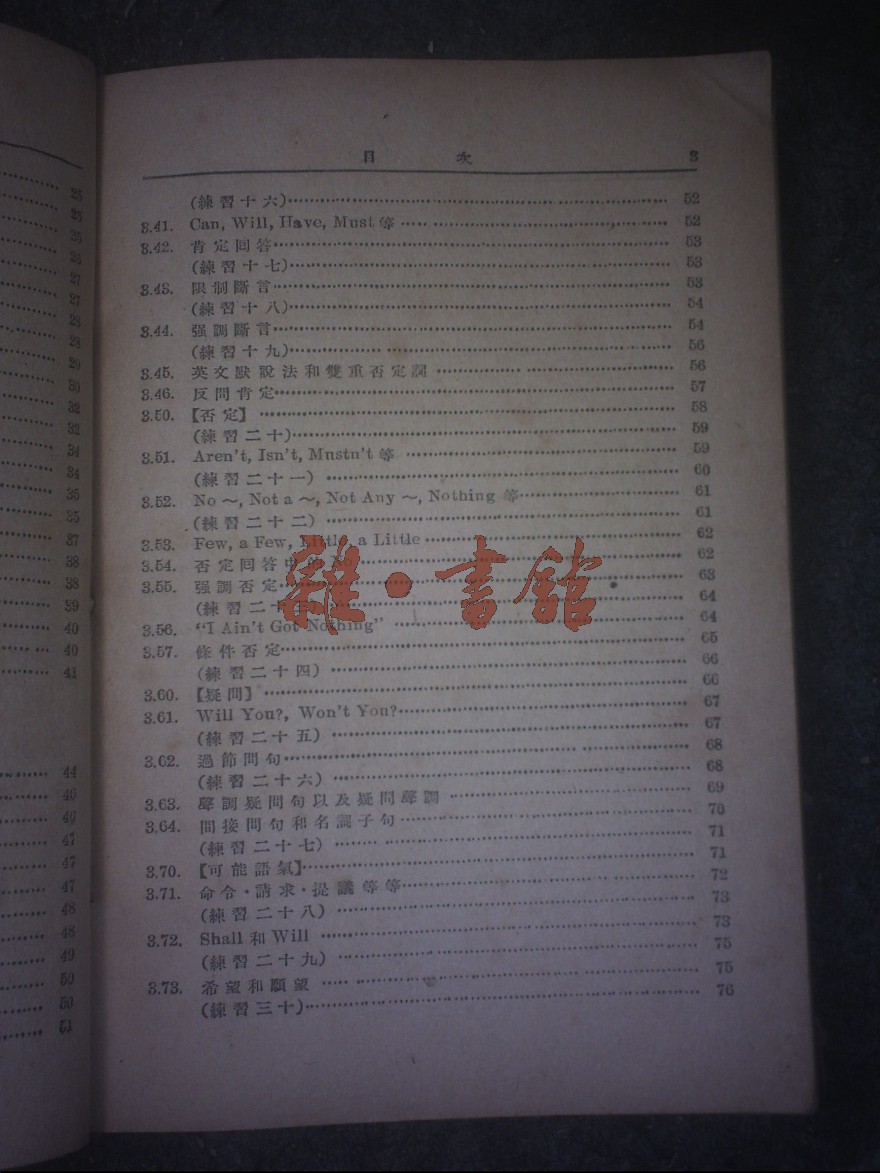 25
25
25
26
27
27
28
28
29
30
32
32
34
34
35
35
37
38
38
39
40
40
41
44
46
46
47
47
47
48
48
49
50
50
51
目 次 3
(練習十六) 52
3.41. Can, Will, Have, Must 等 52
3.42. 肯定回答 53
(練習十七) 53
3.43. 限制斷言 53
(練習十八) 54
3.44. 强調斷言 54
(練習十九) 56
3.45. 英文默說法和雙重否定詞 56
3.46. 反問肯定 57
3.50. 【否定】 58
(練習二十) 59
3.51. Aren't, Isn't, Mustn't 等 59
(練習二十一) 60
3.52. No ～, Not a ～, Not Any ～, Nothing 等 61
(練習二十二) 61
3.53. Few, a Few, Little, a Little 62
3.54. 否定回答中的 No 62
3.55. 强調否定 63
(練習二十三) 64
3.56. “I Ain't Got Nothing” 64
3.57. 條件否定 65
(練習二十四) 66
3.60. 【疑問】 66
3.61. Will You?, Won't You? 67
(練習二十五) 67
3.62. 過節問句 68
(練習二十六) 68
3.63. 聲調疑問句以及疑問聲調 69
3.64. 間接問句和名詞子句 70
(練習二十七) 71
3.70. 【可能語氣】 71
3.71. 命令·請求·提議等等 72
(練習二十八) 73
3.72. Shall 和 Will 73
(練習二十九) 75
3.73. 希望和願望 75
(練習三十) 76
雜·書館